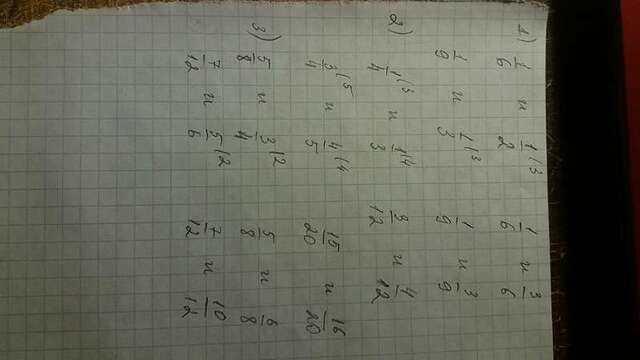 1) 1/6 и 1/2 (3 1/6 и 3/6
1/9 и 1/3 (3 1/9 и 3/9
2) 1/4 (3 и 1/3 (4 3/12 и 4/12
3/4 (5 и 4/5 (4 15/20 и 16/20
3) 5/8 и 3/4 (2 5/8 и 6/8
7/12 и 5/6 (2 7/12 и 10/12